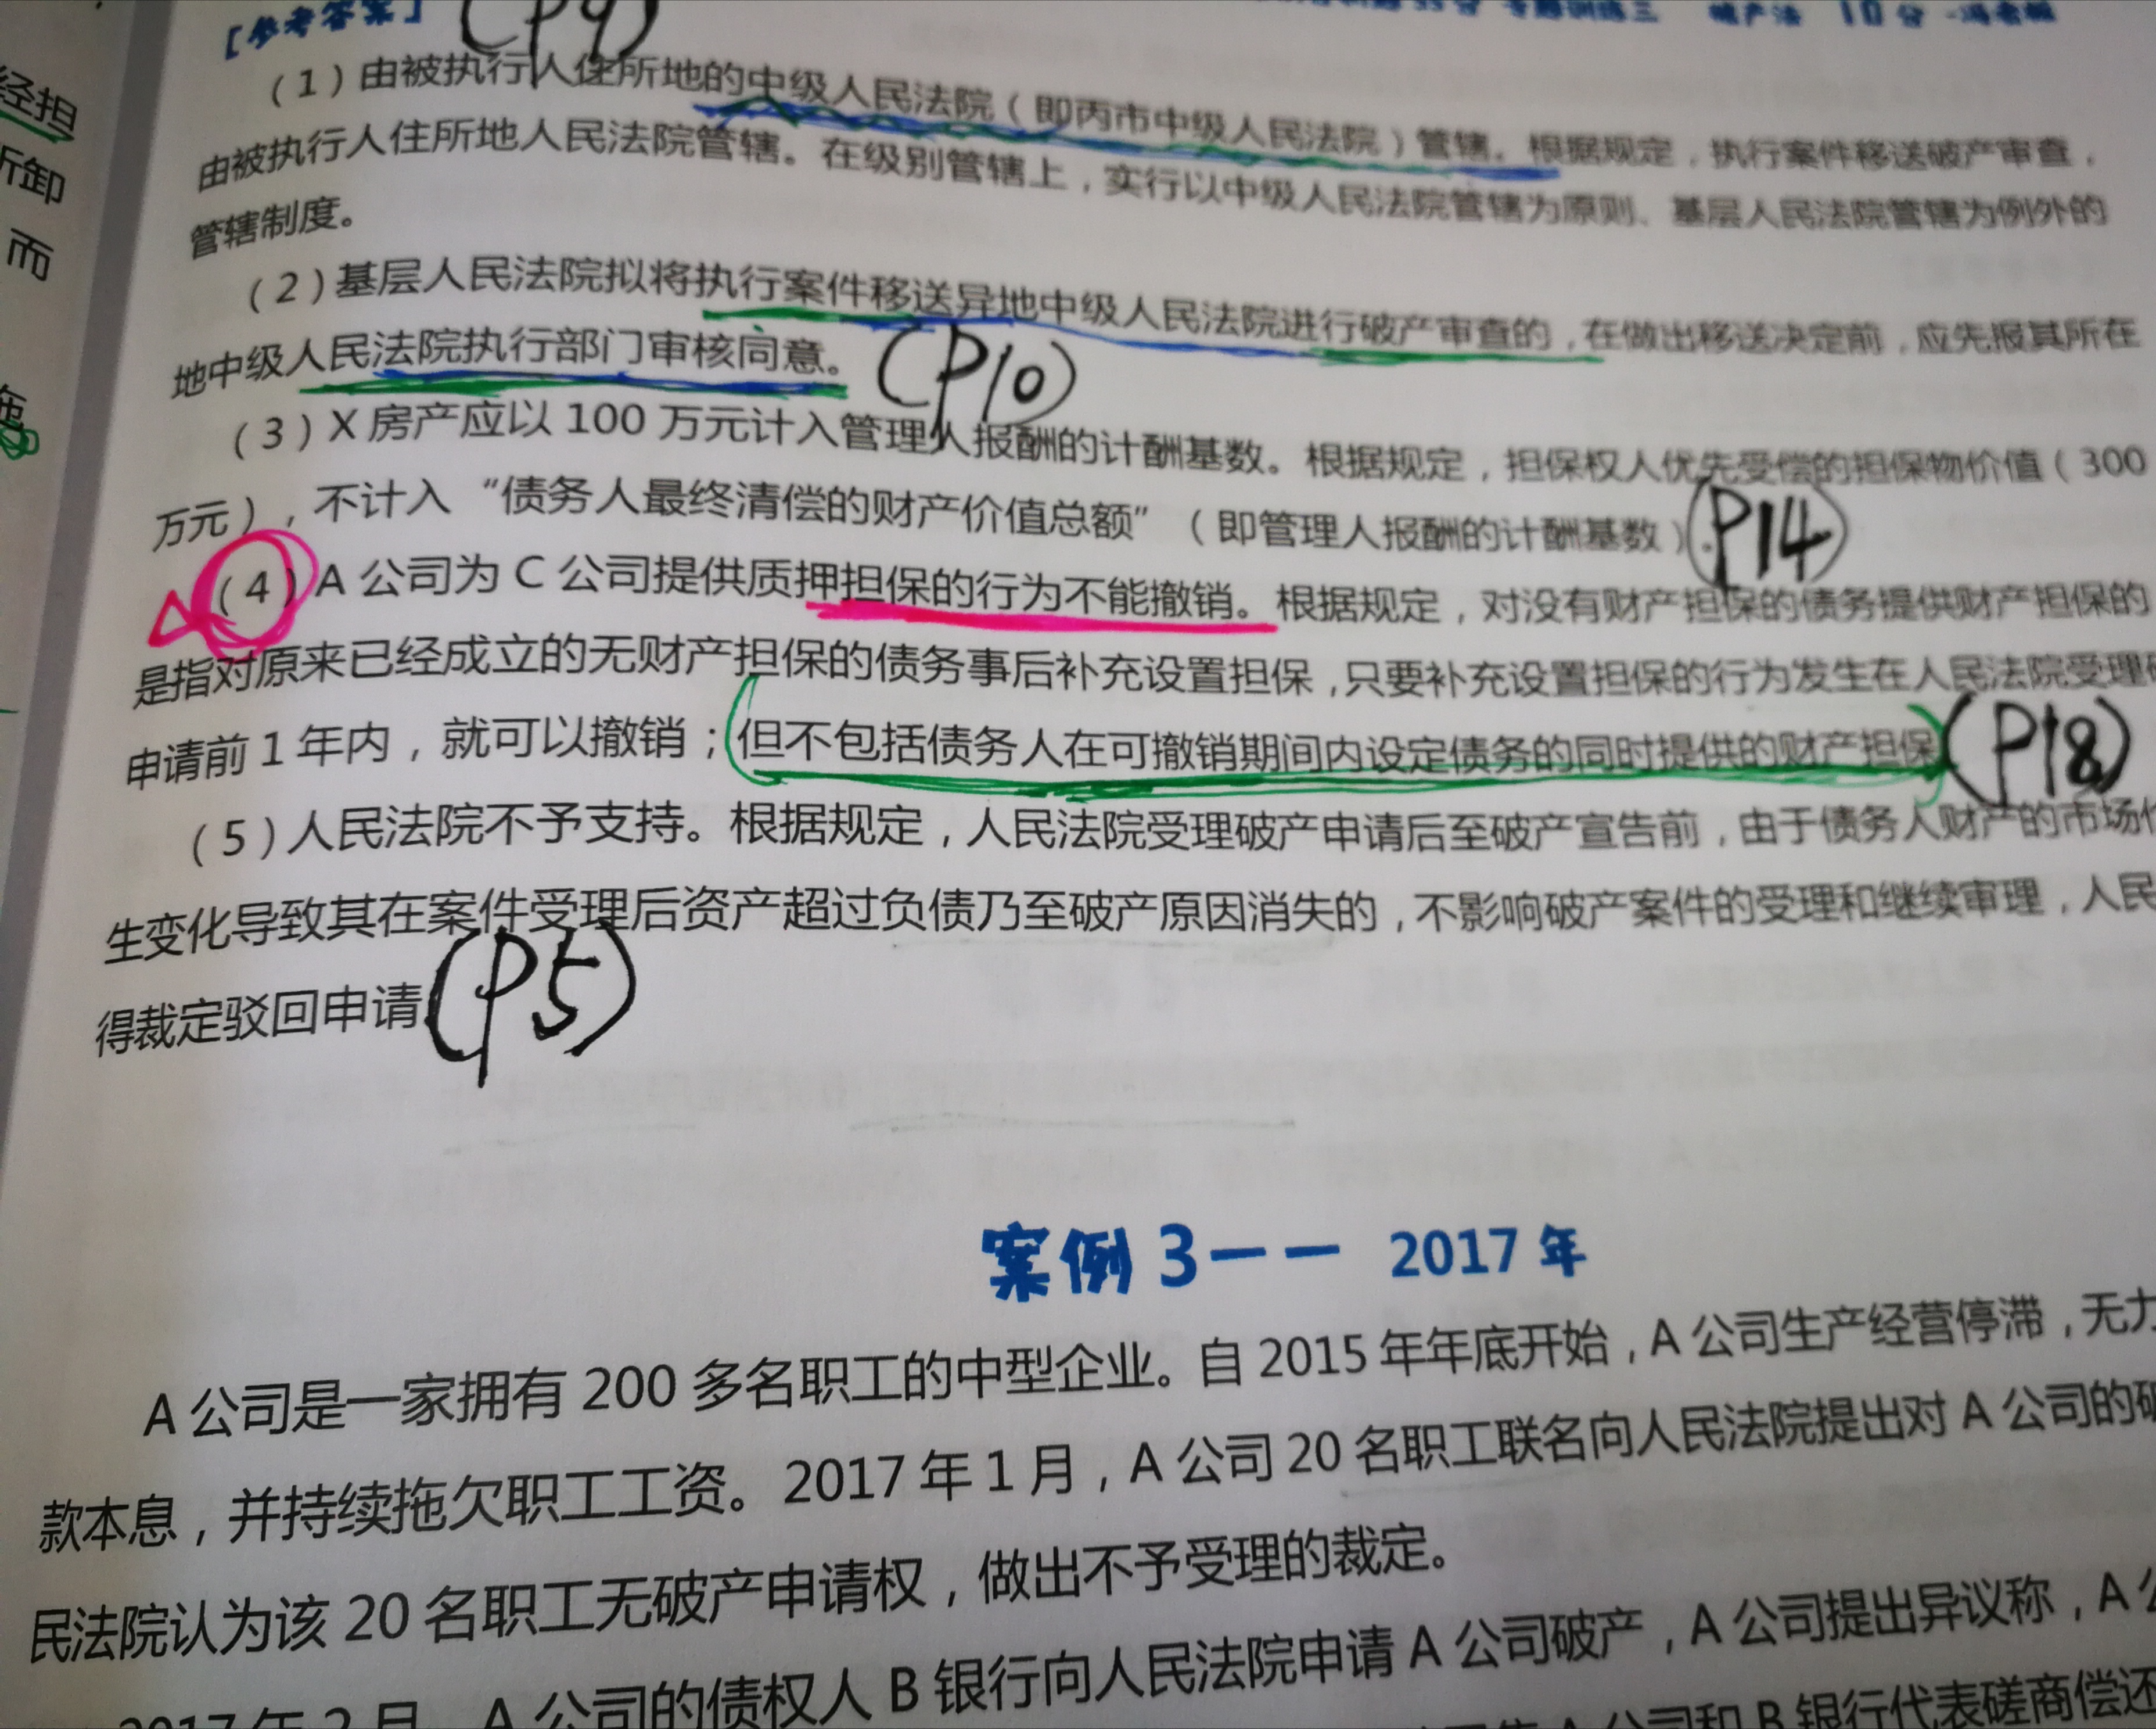 [参考答案] (P9)
专题训练三 破产法 10分
经担
所卸
而
(1)由被执行人住所地的中级人民法院(即丙市中级人民法院)管辖。根据规定,执行案件移送破产审查,
由被执行人住所地人民法院管辖。在级别管辖上,实行以中级人民法院管辖为原则、基层人民法院管辖为例外的
管辖制度。
(2)基层人民法院拟将执行案件移送异地中级人民法院进行破产审查的,在做出移送决定前,应先报其所在
地中级人民法院执行部门审核同意。(P10)
(3)X房产应以100万元计入管理人报酬的计酬基数。根据规定,担保权人优先受偿的担保物价值(300
万元),不计入“债务人最终清偿的财产价值总额”(即管理人报酬的计酬基数)。(P14)
(4)A公司为C公司提供质押担保的行为不能撤销。根据规定,对没有财产担保的债务提供财产担保的
是指对原来已经成立的无财产担保的债务事后补充设置担保,只要补充设置担保的行为发生在人民法院受理破
申请前1年内,就可以撤销;但不包括债务人在可撤销期间内设定债务的同时提供的财产担保(P18)
(5)人民法院不予支持。根据规定,人民法院受理破产申请后至破产宣告前,由于债务人财产的市场价
生变化导致其在案件受理后资产超过负债乃至破产原因消失的,不影响破产案件的受理和继续审理,人民
得裁定驳回申请(P5)
案例3—— 2017年
A公司是一家拥有200多名职工的中型企业。自2015年年底开始,A公司生产经营停滞,无力
款本息,并持续拖欠职工工资。2017年1月,A公司20名职工联名向人民法院提出对A公司的破
民法院认为该20名职工无破产申请权,做出不予受理的裁定。
2017年2月,A公司的债权人B银行向人民法院申请A公司破产,A公司提出异议称,A公
A公司和B银行代表磋商偿还